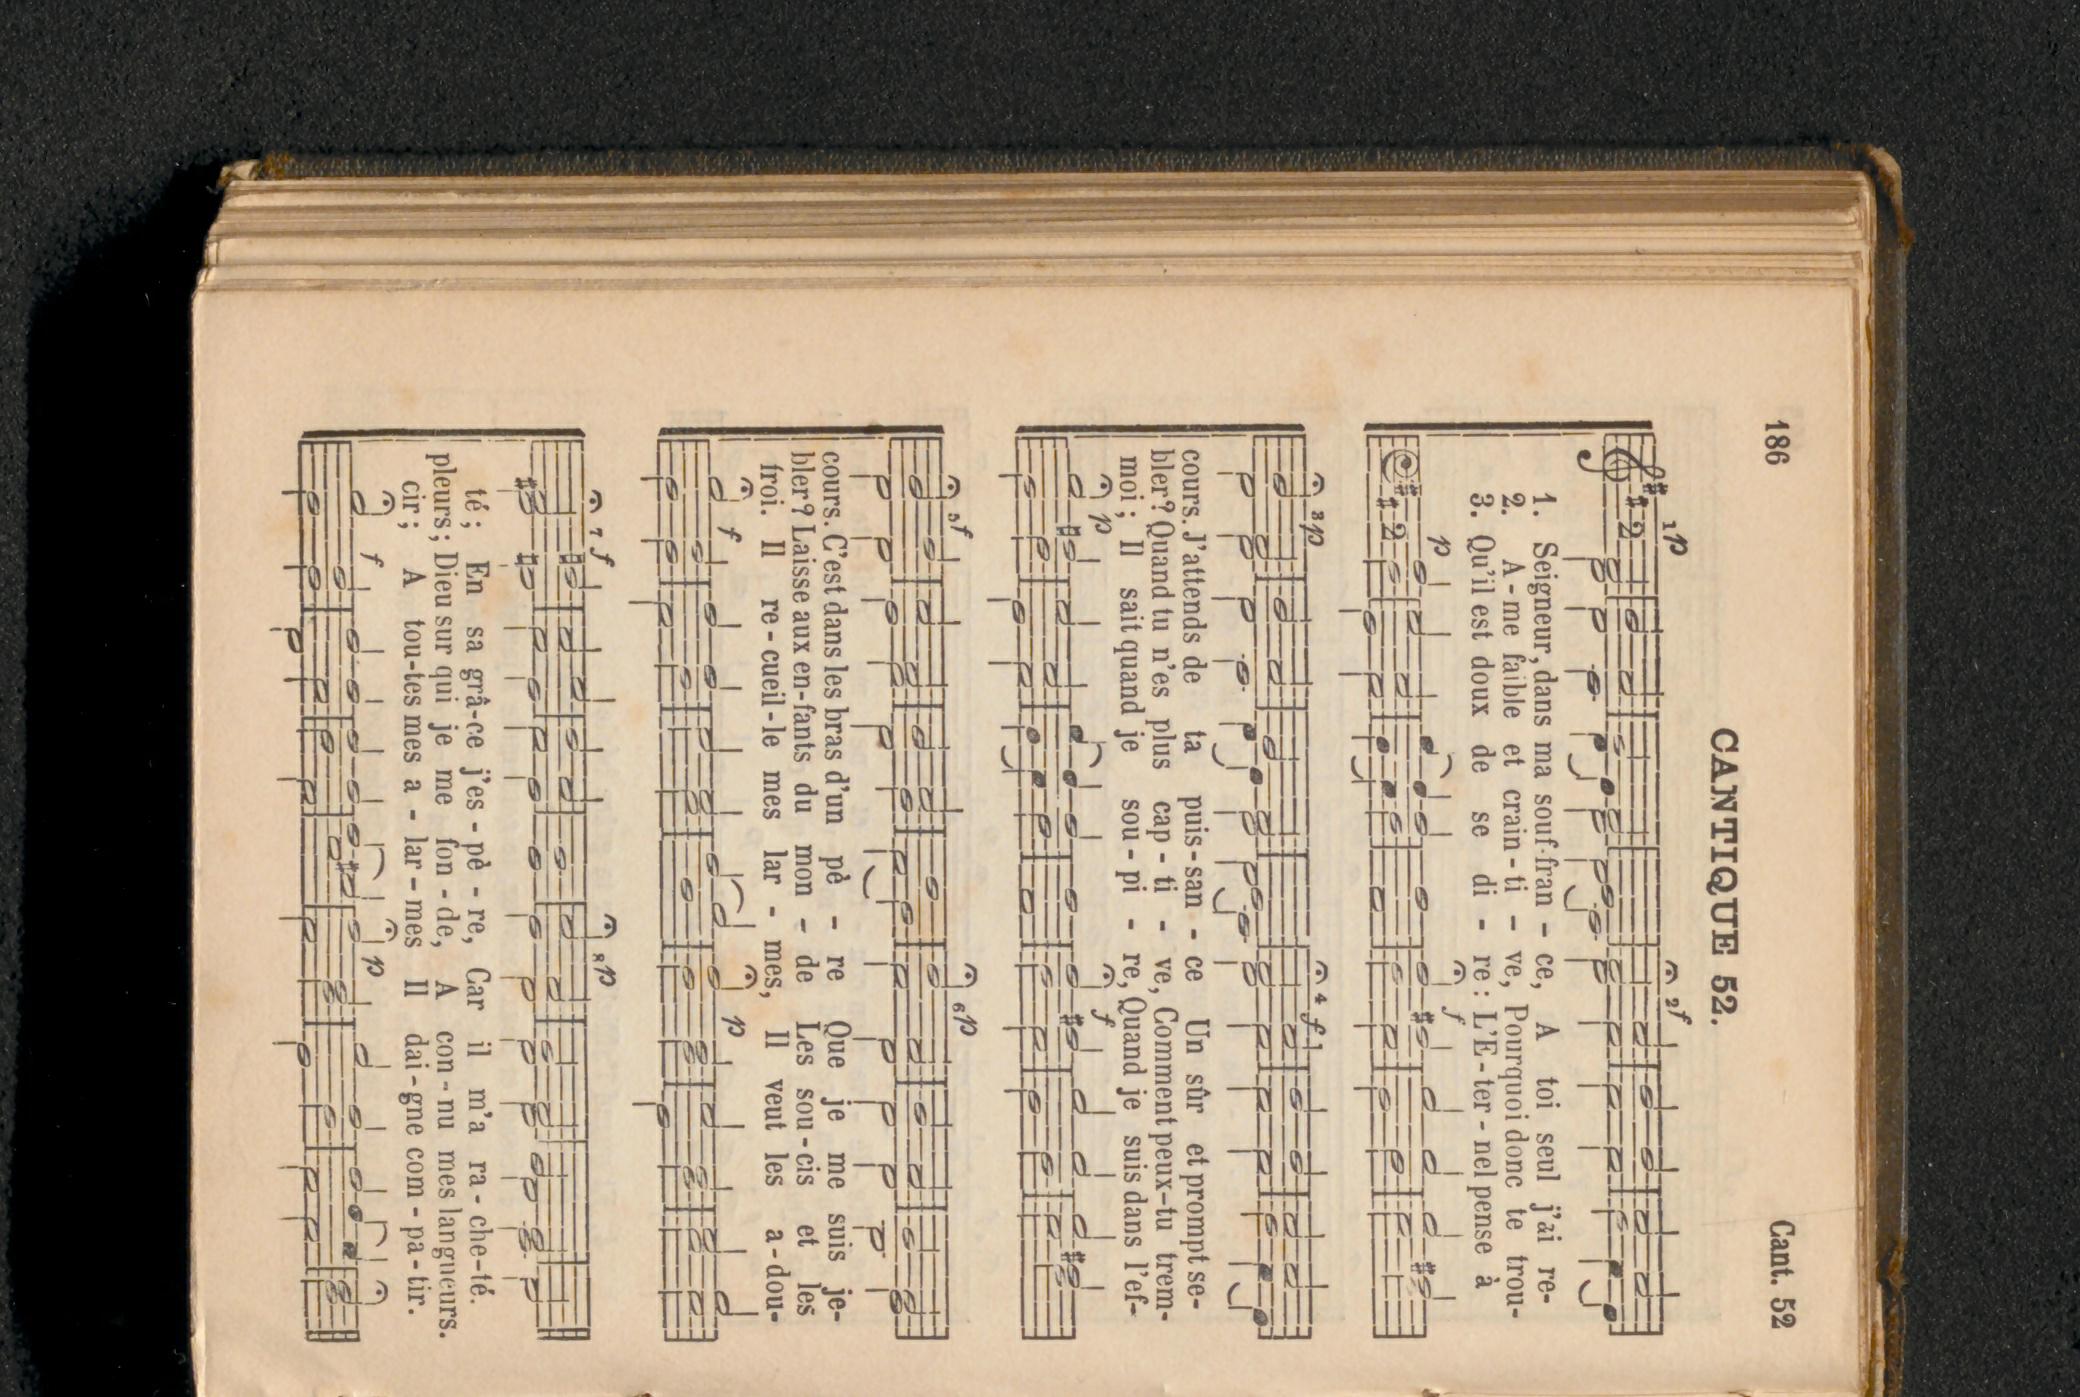 186 Cant. 52
CANTIQUE 52.
1 p 2 f
1. Seigneur, dans ma souf-fran - ce, A toi seul j'ai re-
2. A - me faible et crain - ti - ve, Pourquoi donc te trou-
3. Qu'il est doux de se di - re : L'E - ter - nel pense à
p f
3 p 4 f
cours. J'attends de ta puis - san - ce Un sûr et prompt se-
bler ? Quand tu n'es plus cap - ti - ve, Comment peux-tu trem-
moi ; Il sait quand je sou - pi - re, Quand je suis dans l'ef-
p f
5 f 6 p
cours. C'est dans les bras d'un pè - re Que je me suis je-
bler ? Laisse aux en-fants du mon - de Les sou - cis et les
froi. Il re - cueil - le mes lar - mes, Il veut les a - dou-
f p
7 f 8 p
té ; En sa grâ - ce j'es - pè - re, Car il m'a ra - che - té.
pleurs ; Dieu sur qui je me fon - de, A con - nu mes langueurs.
cir ; A tou - tes mes a - lar - mes Il dai - gne com - pa - tir.
f p